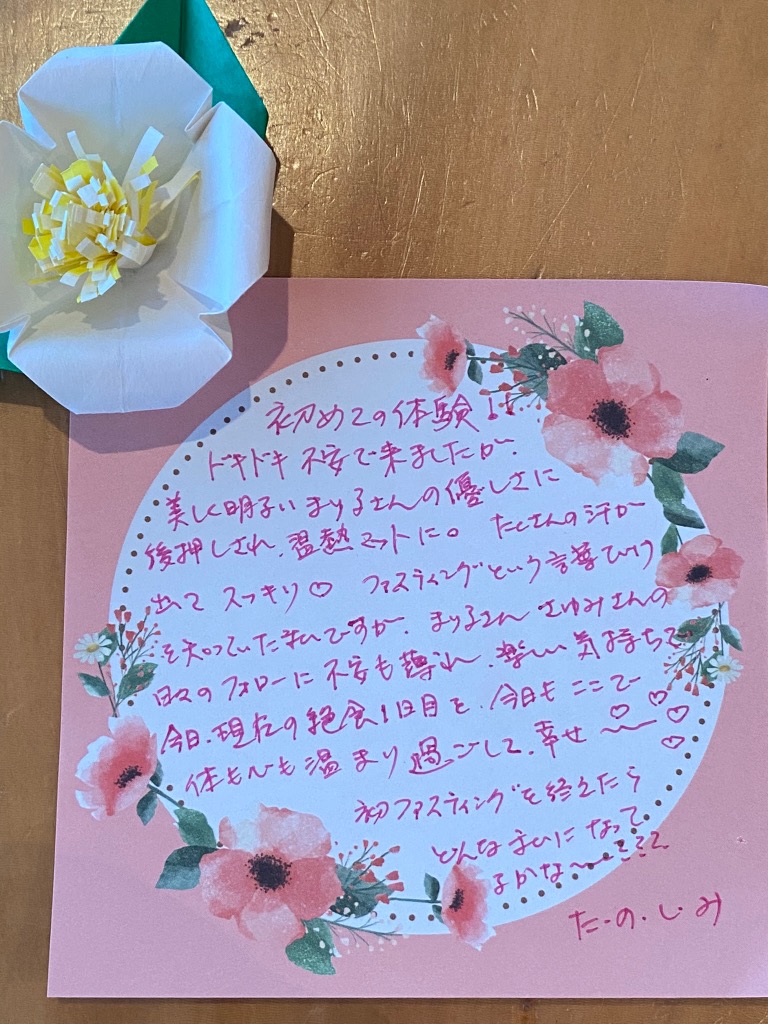 初めての体験!!
ドキドキ 不安で来ましたが、
美しく明るい まりるさんの優しさに
後押しされ、温熱マットに。 たくさんの汗が
出て スッキリ♡ ファスティングという言葉だけ
を知っていた まいですが、まりるさん さゆみさんの
日々のフォローに 不安も薄れ、楽しい気持ちで
今日、現在の絶食1日目を、今日もここで
体も心も温まり 過ごして、幸せ〜♡♡♡♡
初ファスティングを終えたら
どんな まいになって
るかな〜!!!
た・の・し・み